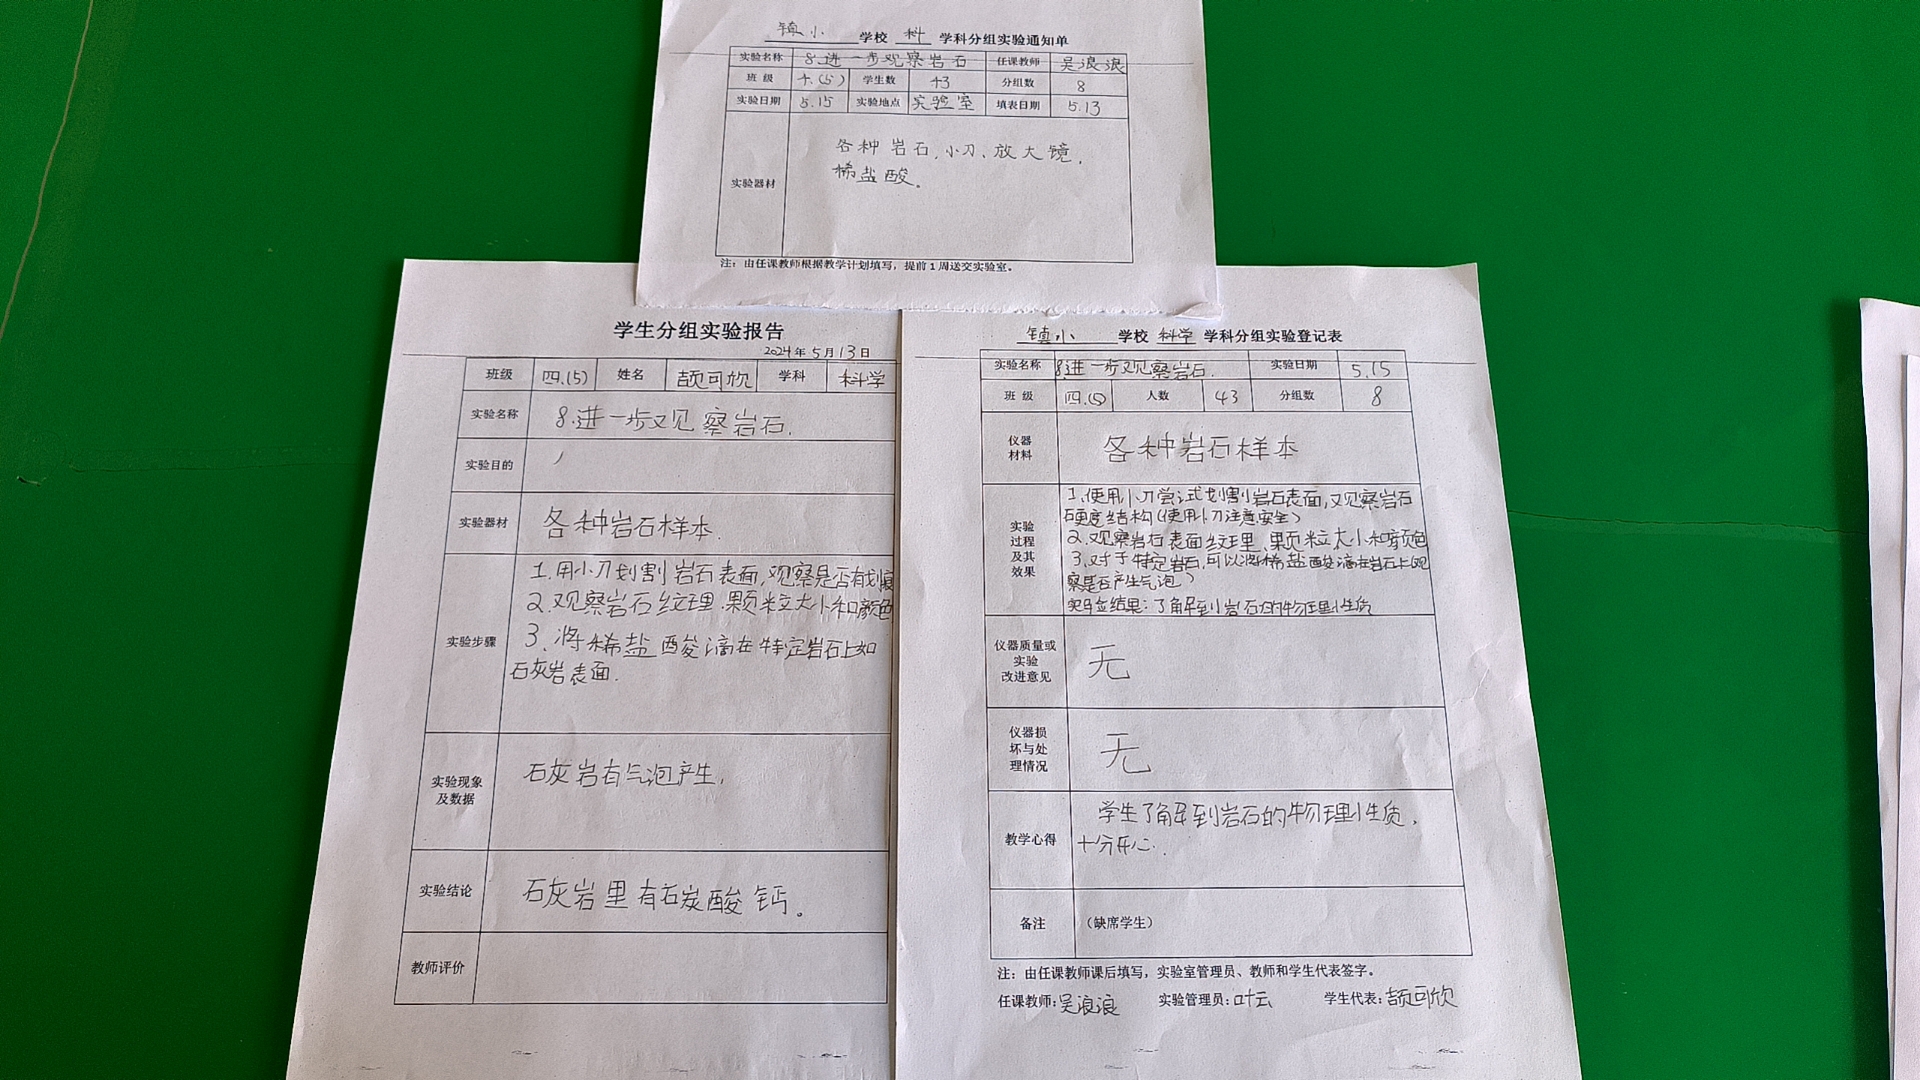 镇小 学校 科 学科分组实验通知单
实验名称 8.进一步观察岩石 任课教师 吴浪浪
班 级 4.(5) 学生数 43 分组数 8
实验日期 5.15 实验地点 实验室 填表日期 5.13
实验器材
各种岩石,小刀、放大镜,
稀盐酸。
注:由任课教师根据教学计划填写,提前1周送交实验室。
学生分组实验报告
2024年5月13日
班级 四.(5) 姓名 颉可欣 学科 科学
实验名称 8.进一步观察岩石.
实验目的
实验器材 各种岩石样本.
实验步骤
1.用小刀划割岩石表面,观察是否有划痕
2.观察岩石纹理.颗粒大小和颜色
3.将稀盐酸滴在特定岩石上如
石灰岩表面.
实验现象
及数据
石灰岩有气泡产生,
实验结论 石灰岩里有石炭酸钙。
教师评价
镇小 学校 科学 学科分组实验登记表
实验名称 8.进一步观察岩石. 实验日期 5.15
班 级 四.(5) 人数 43 分组数 8
仪器
材料
各种岩石样本
实验
过程
及其
效果
1.使用小刀尝试划割岩石表面,观察岩石
硬度结构(使用小刀注意安全)
2.观察岩石表面纹理.颗粒大小和颜色
3.对于特定岩石,可以将稀盐酸滴在岩石上观
察是否产生气泡)
实验结果:了解到岩石的物理性质
仪器质量或
实验
改进意见
无
仪器损
坏与处
理情况
无
教学心得
学生了解到岩石的物理性质,
十分开心.
备注 (缺席学生)
注:由任课教师课后填写,实验室管理员、教师和学生代表签字。
任课教师:吴浪浪 实验管理员:叶云 学生代表:颉可欣